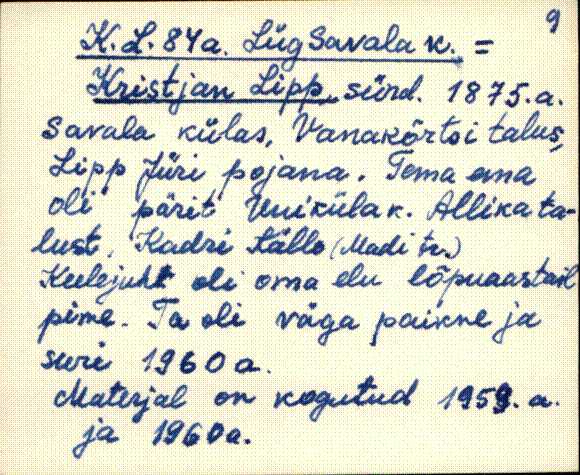 9
K. L. 84a. Lüg Savala k. =
Kristjan Lipp, sünd. 1875. a.
Savala külas, Vanakõrtsi talus,
Lipp Jüri pojana. Tema ema
oli pärit Uniküla k. Allika ta-
lust, Kadri Källo (Madi tr.)
Keelejuht oli oma elu lõpuaastail
pime. Ta oli väga paikne ja
suri 1960 a.
Materjal on kogutud 1959. a.
ja 1960a.